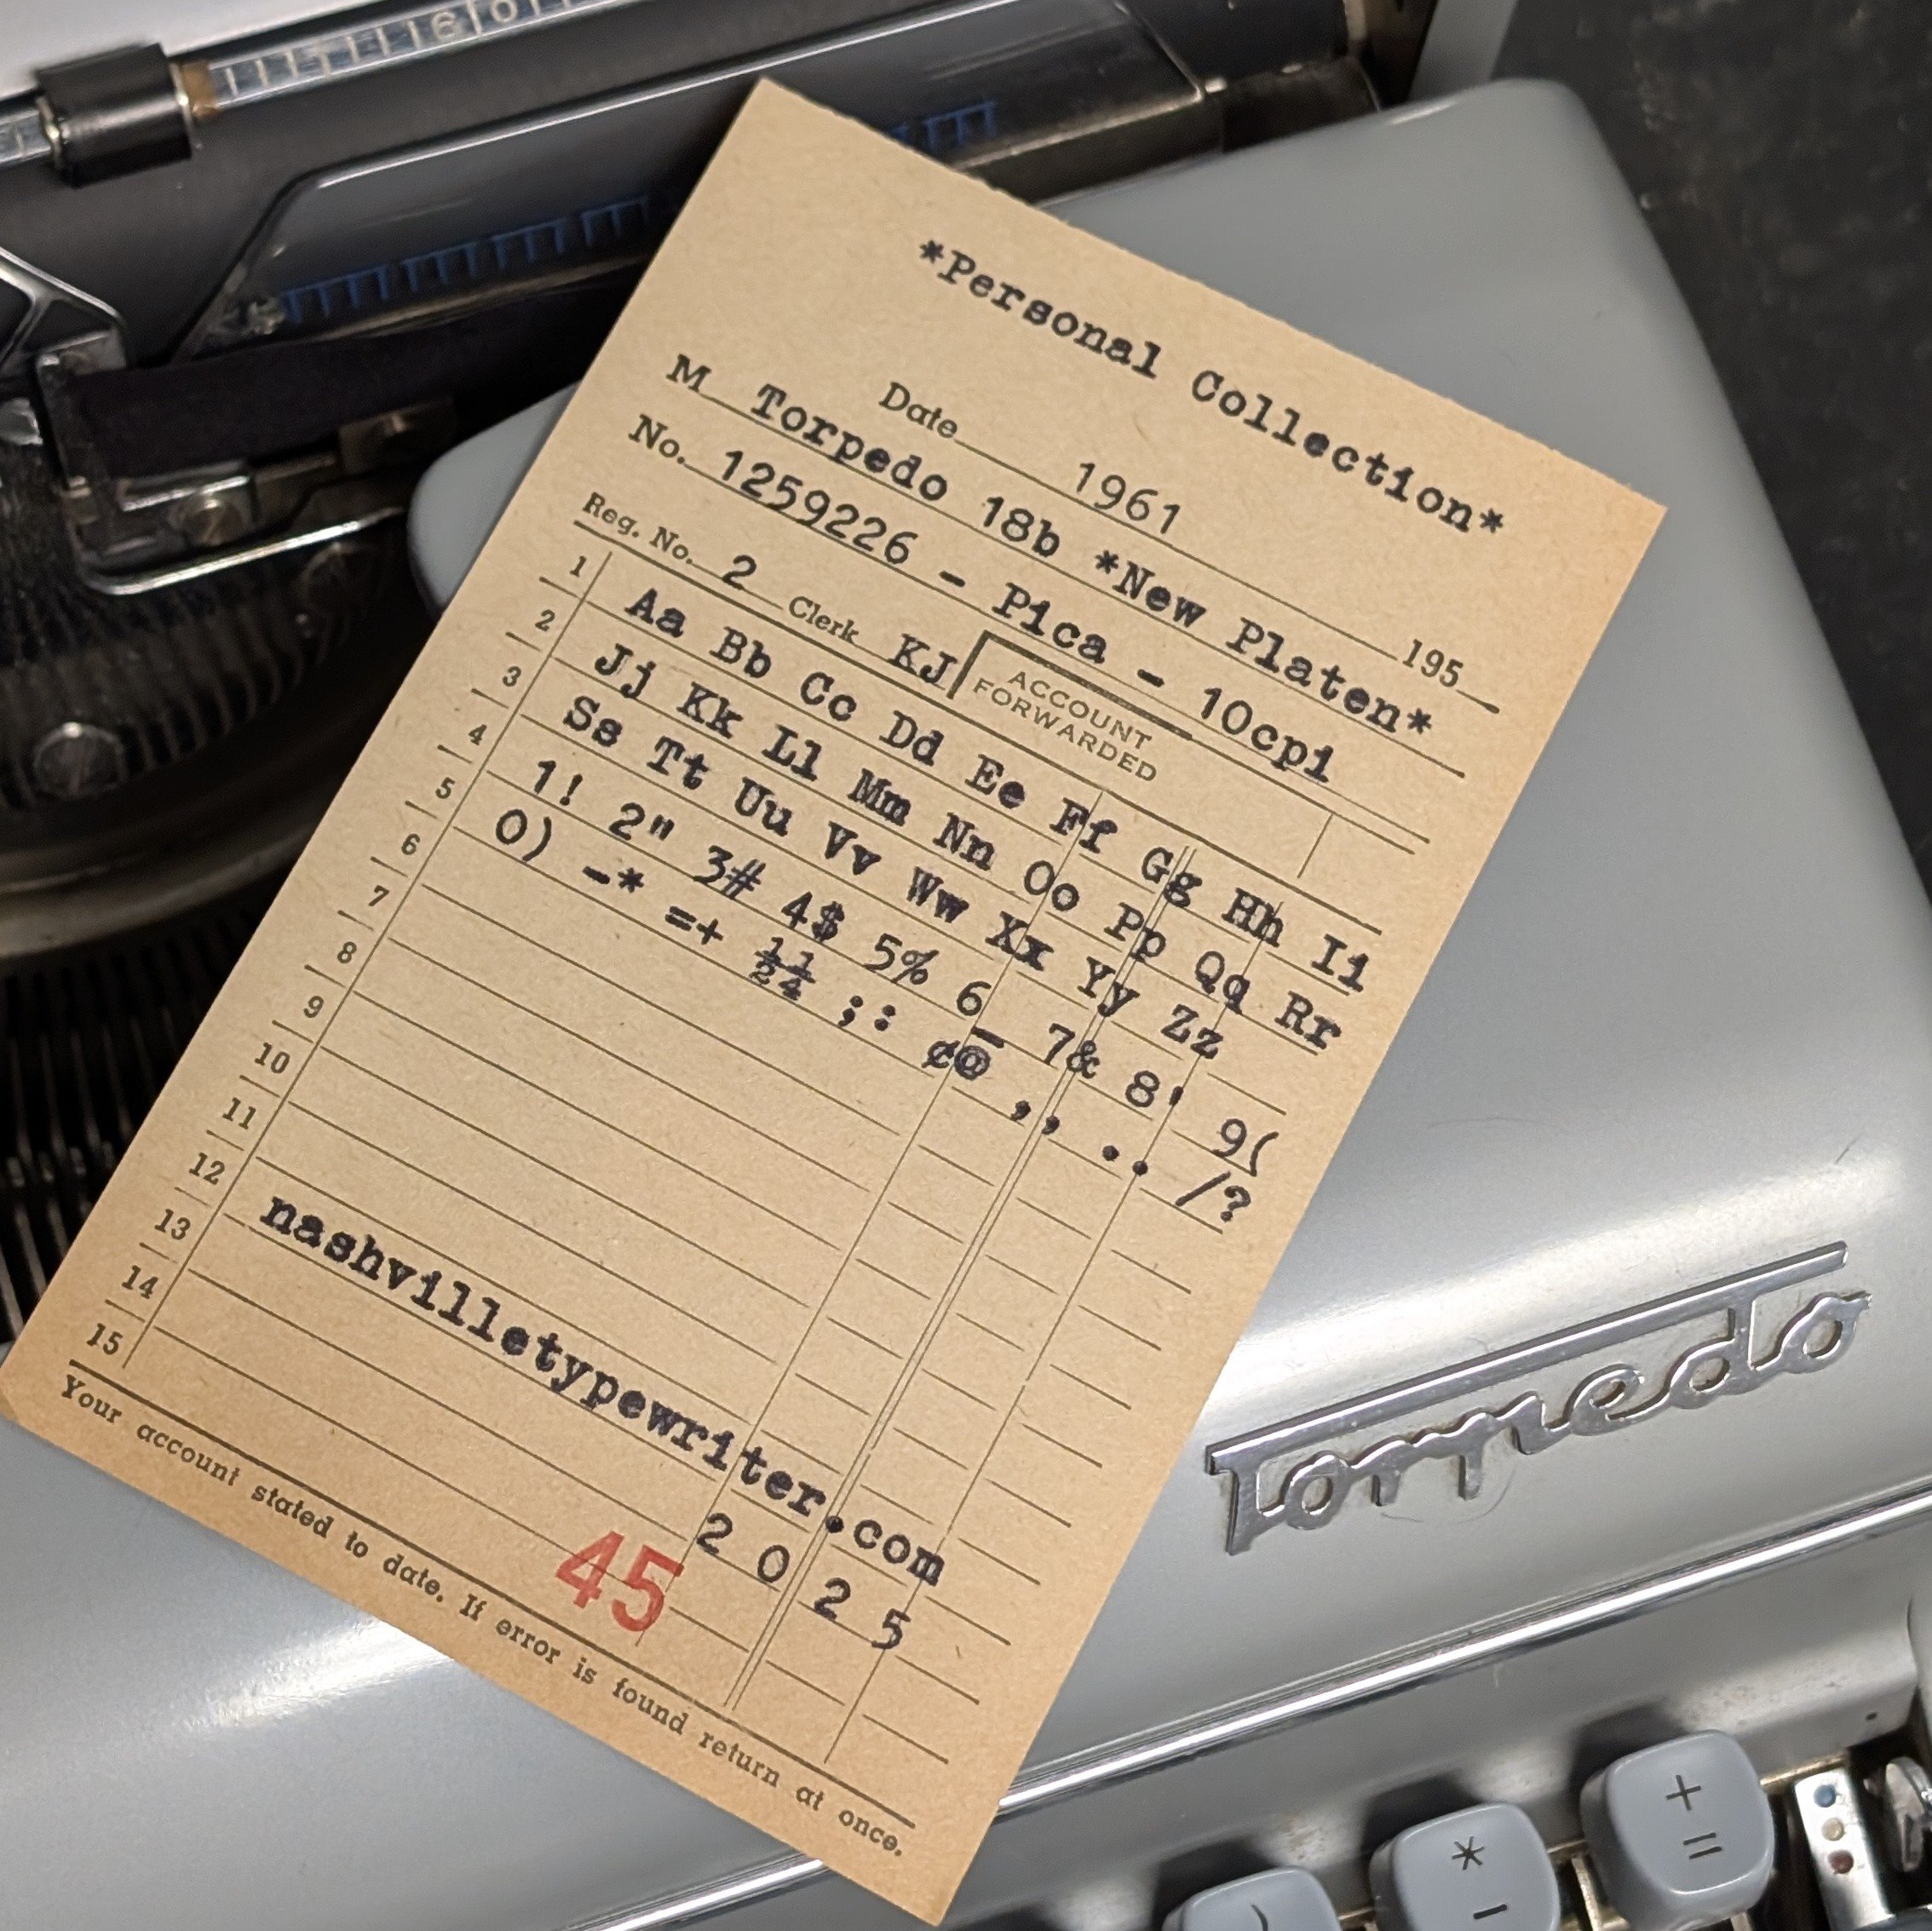 *Personal Collection*
Date 1961 195
M Torpedo 18b *New Platen*
No. 1259226 - Pica - 10cpi
Reg. No. 2 Clerk KJ ACCOUNT FORWARDED
1 Aa Bb Cc Dd Ee Ff Gg Hh Ii
2 Jj Kk Ll Mm Nn Oo Pp Qq Rr
3 Ss Tt Uu Vv Ww Xx Yy Zz
4 1! 2" 3# 4$ 5% 6_ 7& 8' 9(
5 0) -* =+ ½¼ ;: ¢@ ,, .. /?
6
7
8
9
10
11
12
13 nashvilletypewriter.com
14 2 0 2 5
15 45
Your account stated to date. If error is found return at once.
Torpedo
+
=
*
-
)